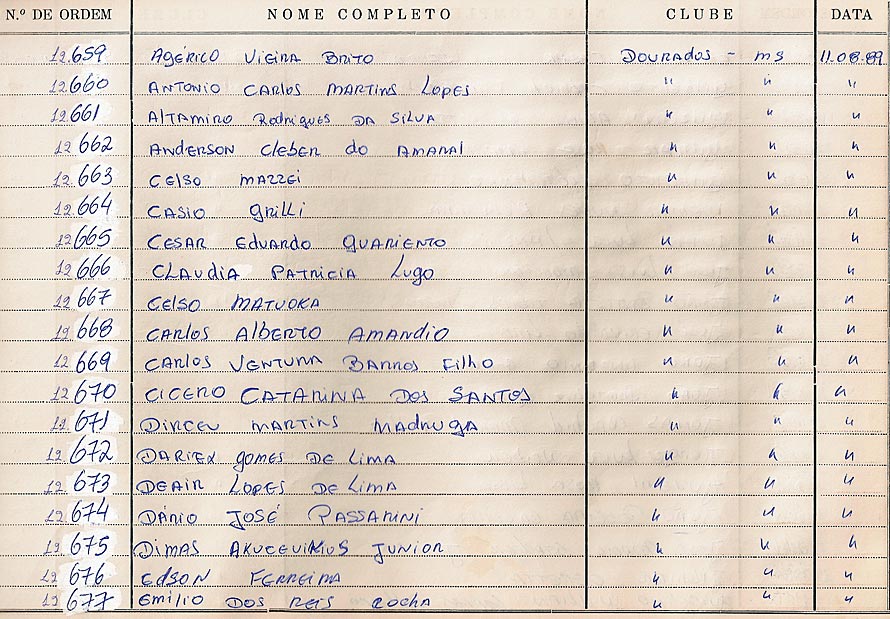 N.º DE ORDEM NOME COMPLETO CLUBE DATA
12.659 AGÉRICO VIEIRA BRITO DOURADOS - MS 11.08.89
12660 ANTONIO CARLOS MARTINS LOPES " " "
12.661 ALTAMIRO Rodrigues DA SILVA " " "
12 662 ANDERSON Cleber do AMARAl " " "
12.663 CElSO MAZZEI " " "
12.664 CASIO GRilli " " "
12665 CESAR EduARdO GUARIENTO " " "
12.666 CLAUdiA PATRICIA Lugo " " "
12 667 CElSO MATUOKA " " "
12 668 CARLOS AlBERTO AMANdiO " " "
12 669 CARLOS VENTURA BARROS Filho " " "
12 670 CICERO CATARINA DOS SANTOS " " "
12.671 DIRCEU MARTINS MADRUGA " " "
12.672 gomES DE LIMA " " "
12 673 DEAIR LOPES DE LIMA " " "
12 674 DÁRIO JOSÉ PASSARINI " " "
12.675 DIMAS JUNIOR " " "
12. 676 EdSON FERREIRA " " "
12.677 EMILIO DOS REIS ROCHA " " "